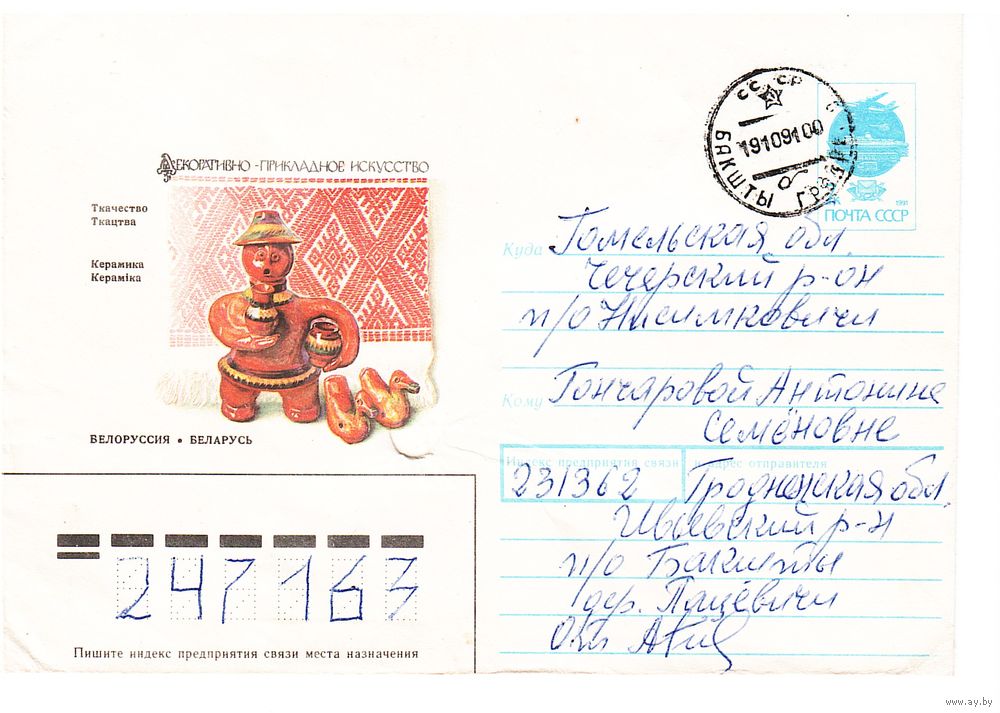 Декоративно-прикладное искусство
Ткачество
Ткацтва
Керамика
Кераміка
БЕЛОРУССИЯ • БЕЛАРУСЬ
СССР
19109100
БАКШТЫ
б
1991
ПОЧТА СССР
Куда Гомельская обл.
Чечерский р-он
п/о Нисимковичи
Кому Гончаровой Антонине
Семёновне
Индекс предприятия связи
231362
адрес отправителя
Гродненская обл
Ивьевский р-н
п/о Бакшты
дер. Пацевичи
247163
Пишите индекс предприятия связи места назначения
www.ay.by